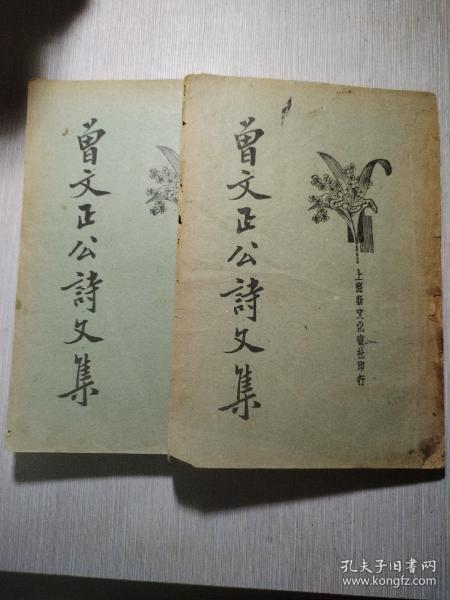 曾文正公詩文集
曾文正公詩文集
上海新文化書社印行
孔夫子旧书网
www.kongfz.com